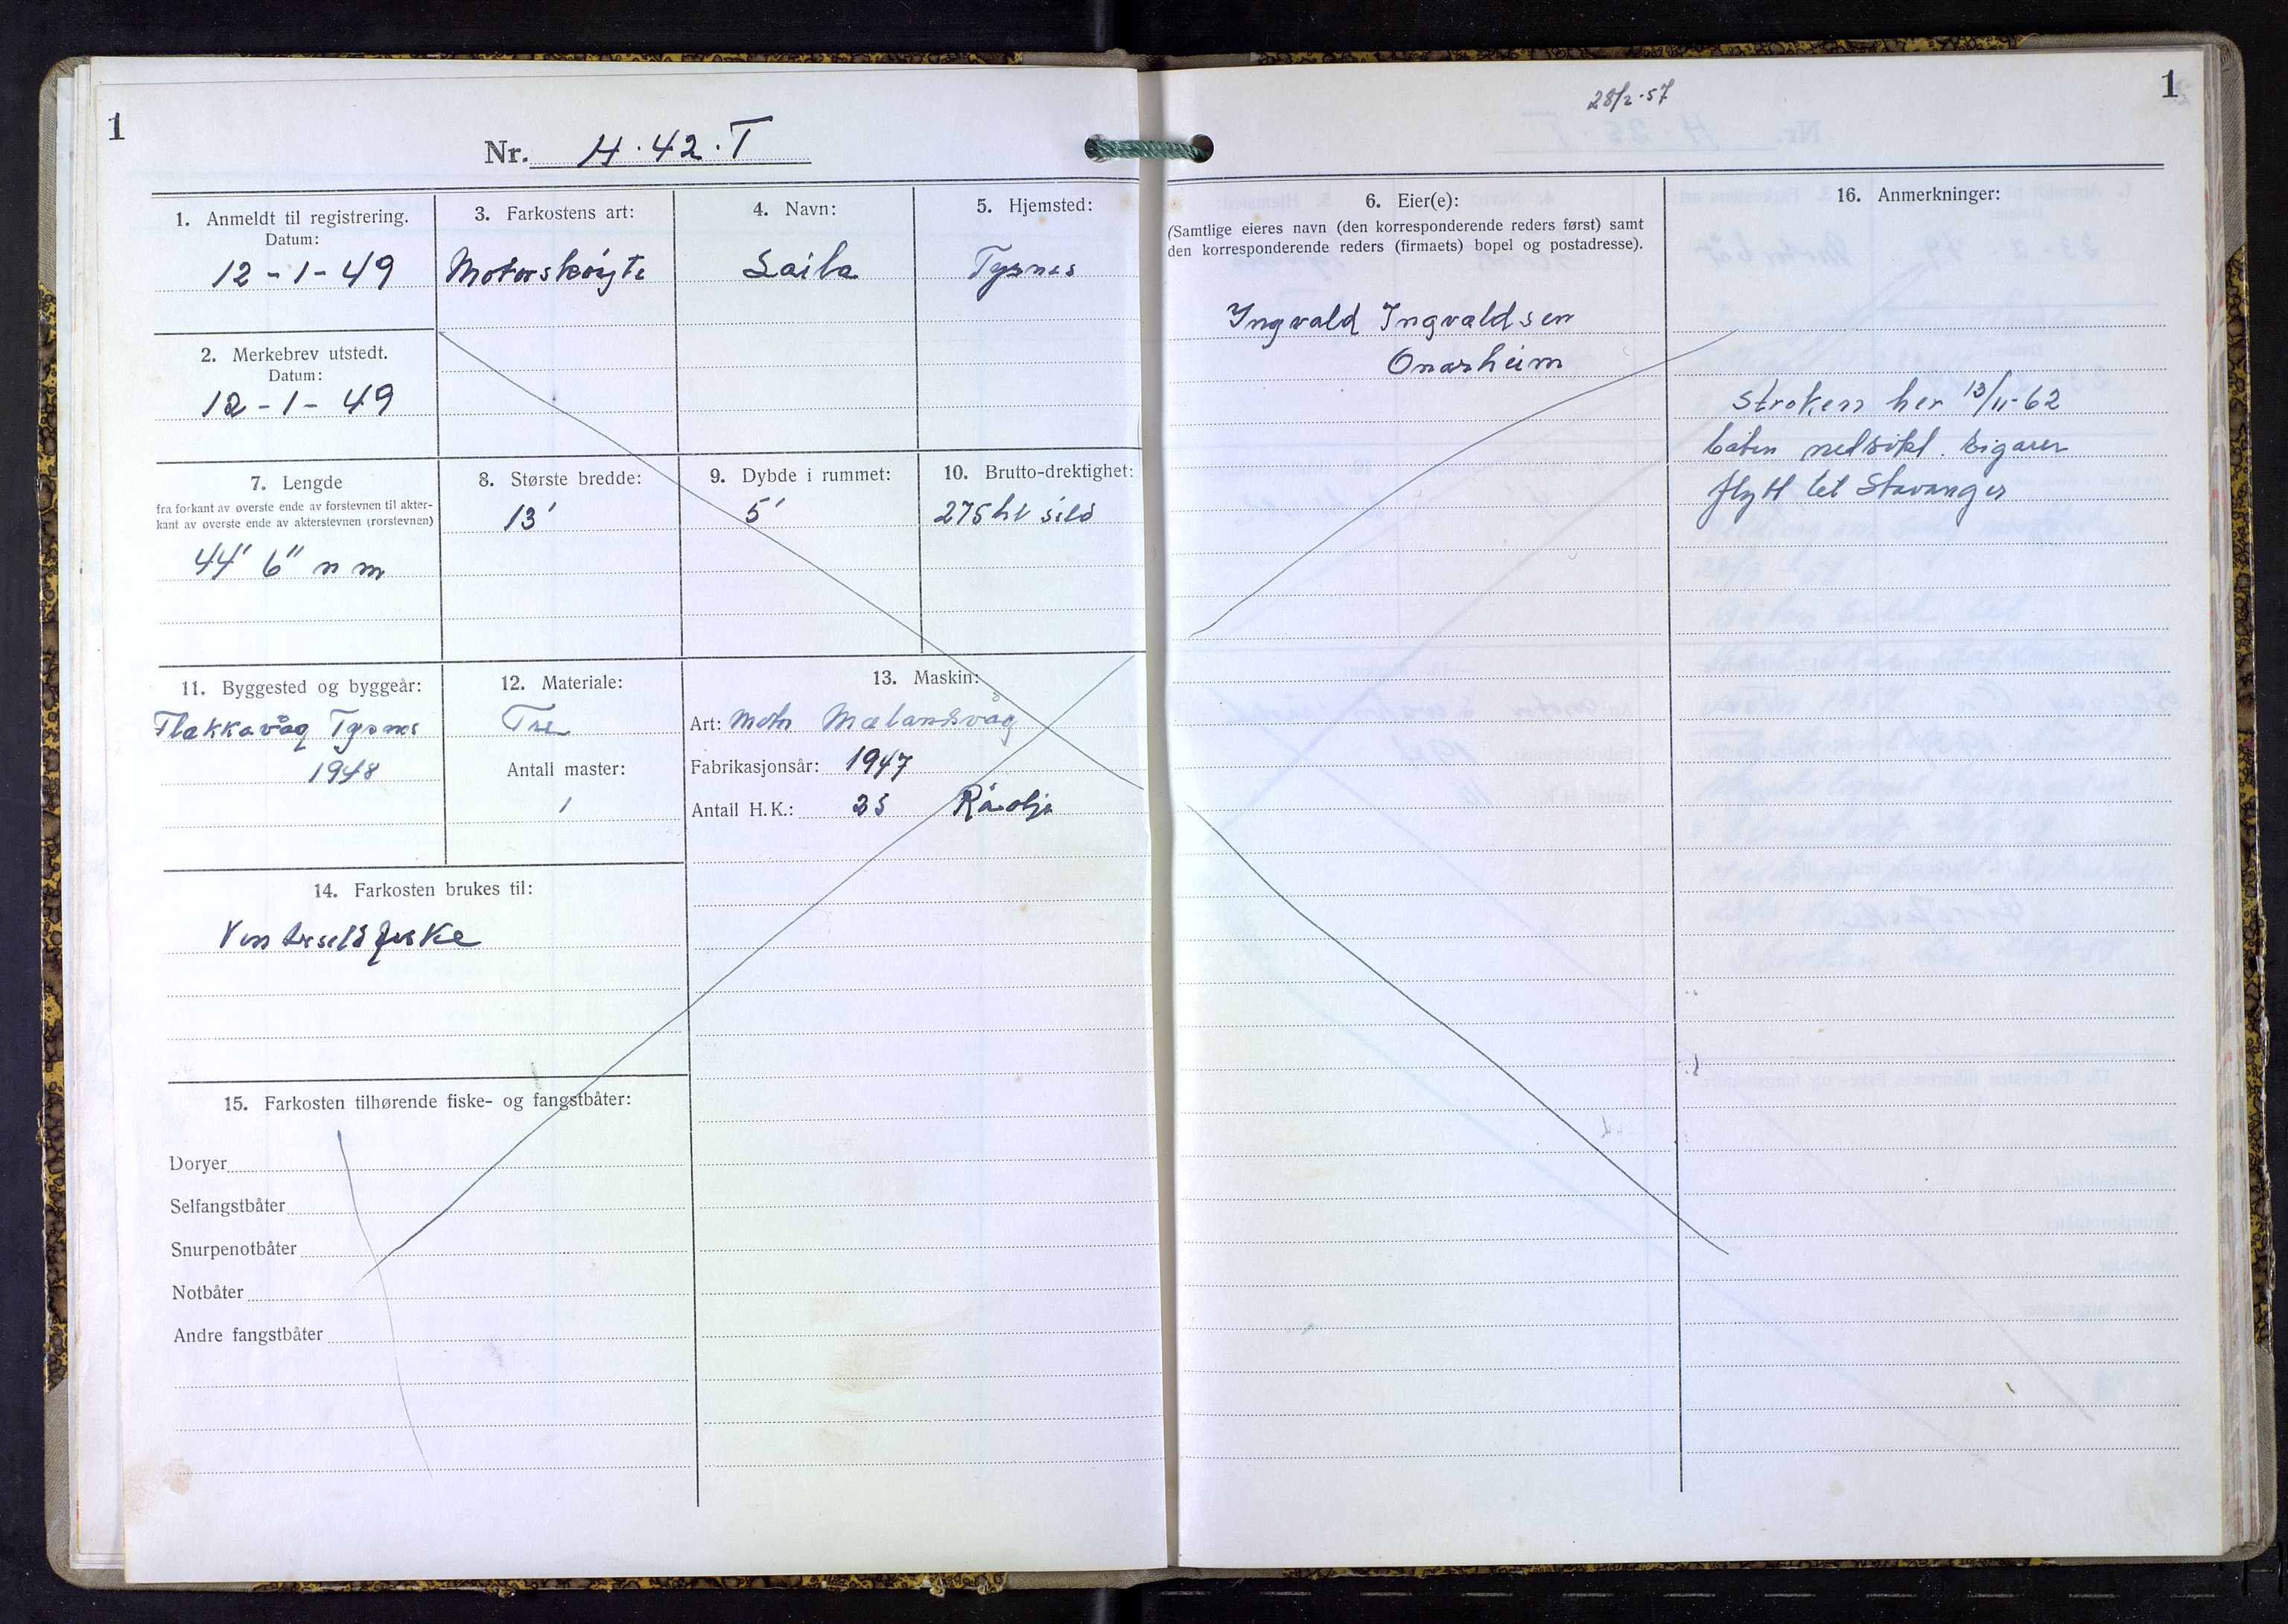 1
Nr. H.42.T
1. Anmeldt til registrering.
Datum:
12-1-49
2. Merkebrev utstedt.
Datum:
12-1-49
3. Farkostens art:
Motorskøyte
4. Navn:
Laila
5. Hjemsted:
Tysnes
7. Lengde
fra forkant av øverste ende av forstevnen til akter-
kant av øverste ende av akterstevnen (rorstevnen)
44' 6" n m
8. Største bredde:
13'
9. Dybde i rummet:
5'
10. Brutto-drektighet:
275 hl sild
11. Byggested og byggeår:
Flakkavåg Tysnes
1948
12. Materiale:
Tre
Antall master:
1
13. Maskin:
Art: Motor Mælandsvåg
Fabrikasjonsår: 1947
Antall H.K.: 25 Råolje
14. Farkosten brukes til:
Vintersildfiske
15. Farkosten tilhørende fiske- og fangstbåter:
Doryer
Selfangstbåter
Snurpenotbåter
Notbåter
Andre fangstbåter
28/2-57
1
6. Eier(e):
(Samtlige eieres navn (den korresponderende reders først) samt
den korresponderende reders (firmaets) bopel og postadresse).
Ingvald Ingvaldsen
Onarheim
16. Anmerkninger:
Stroken her 13/11-62
båten nedrikl. Eigaren
flytt til Stavanger